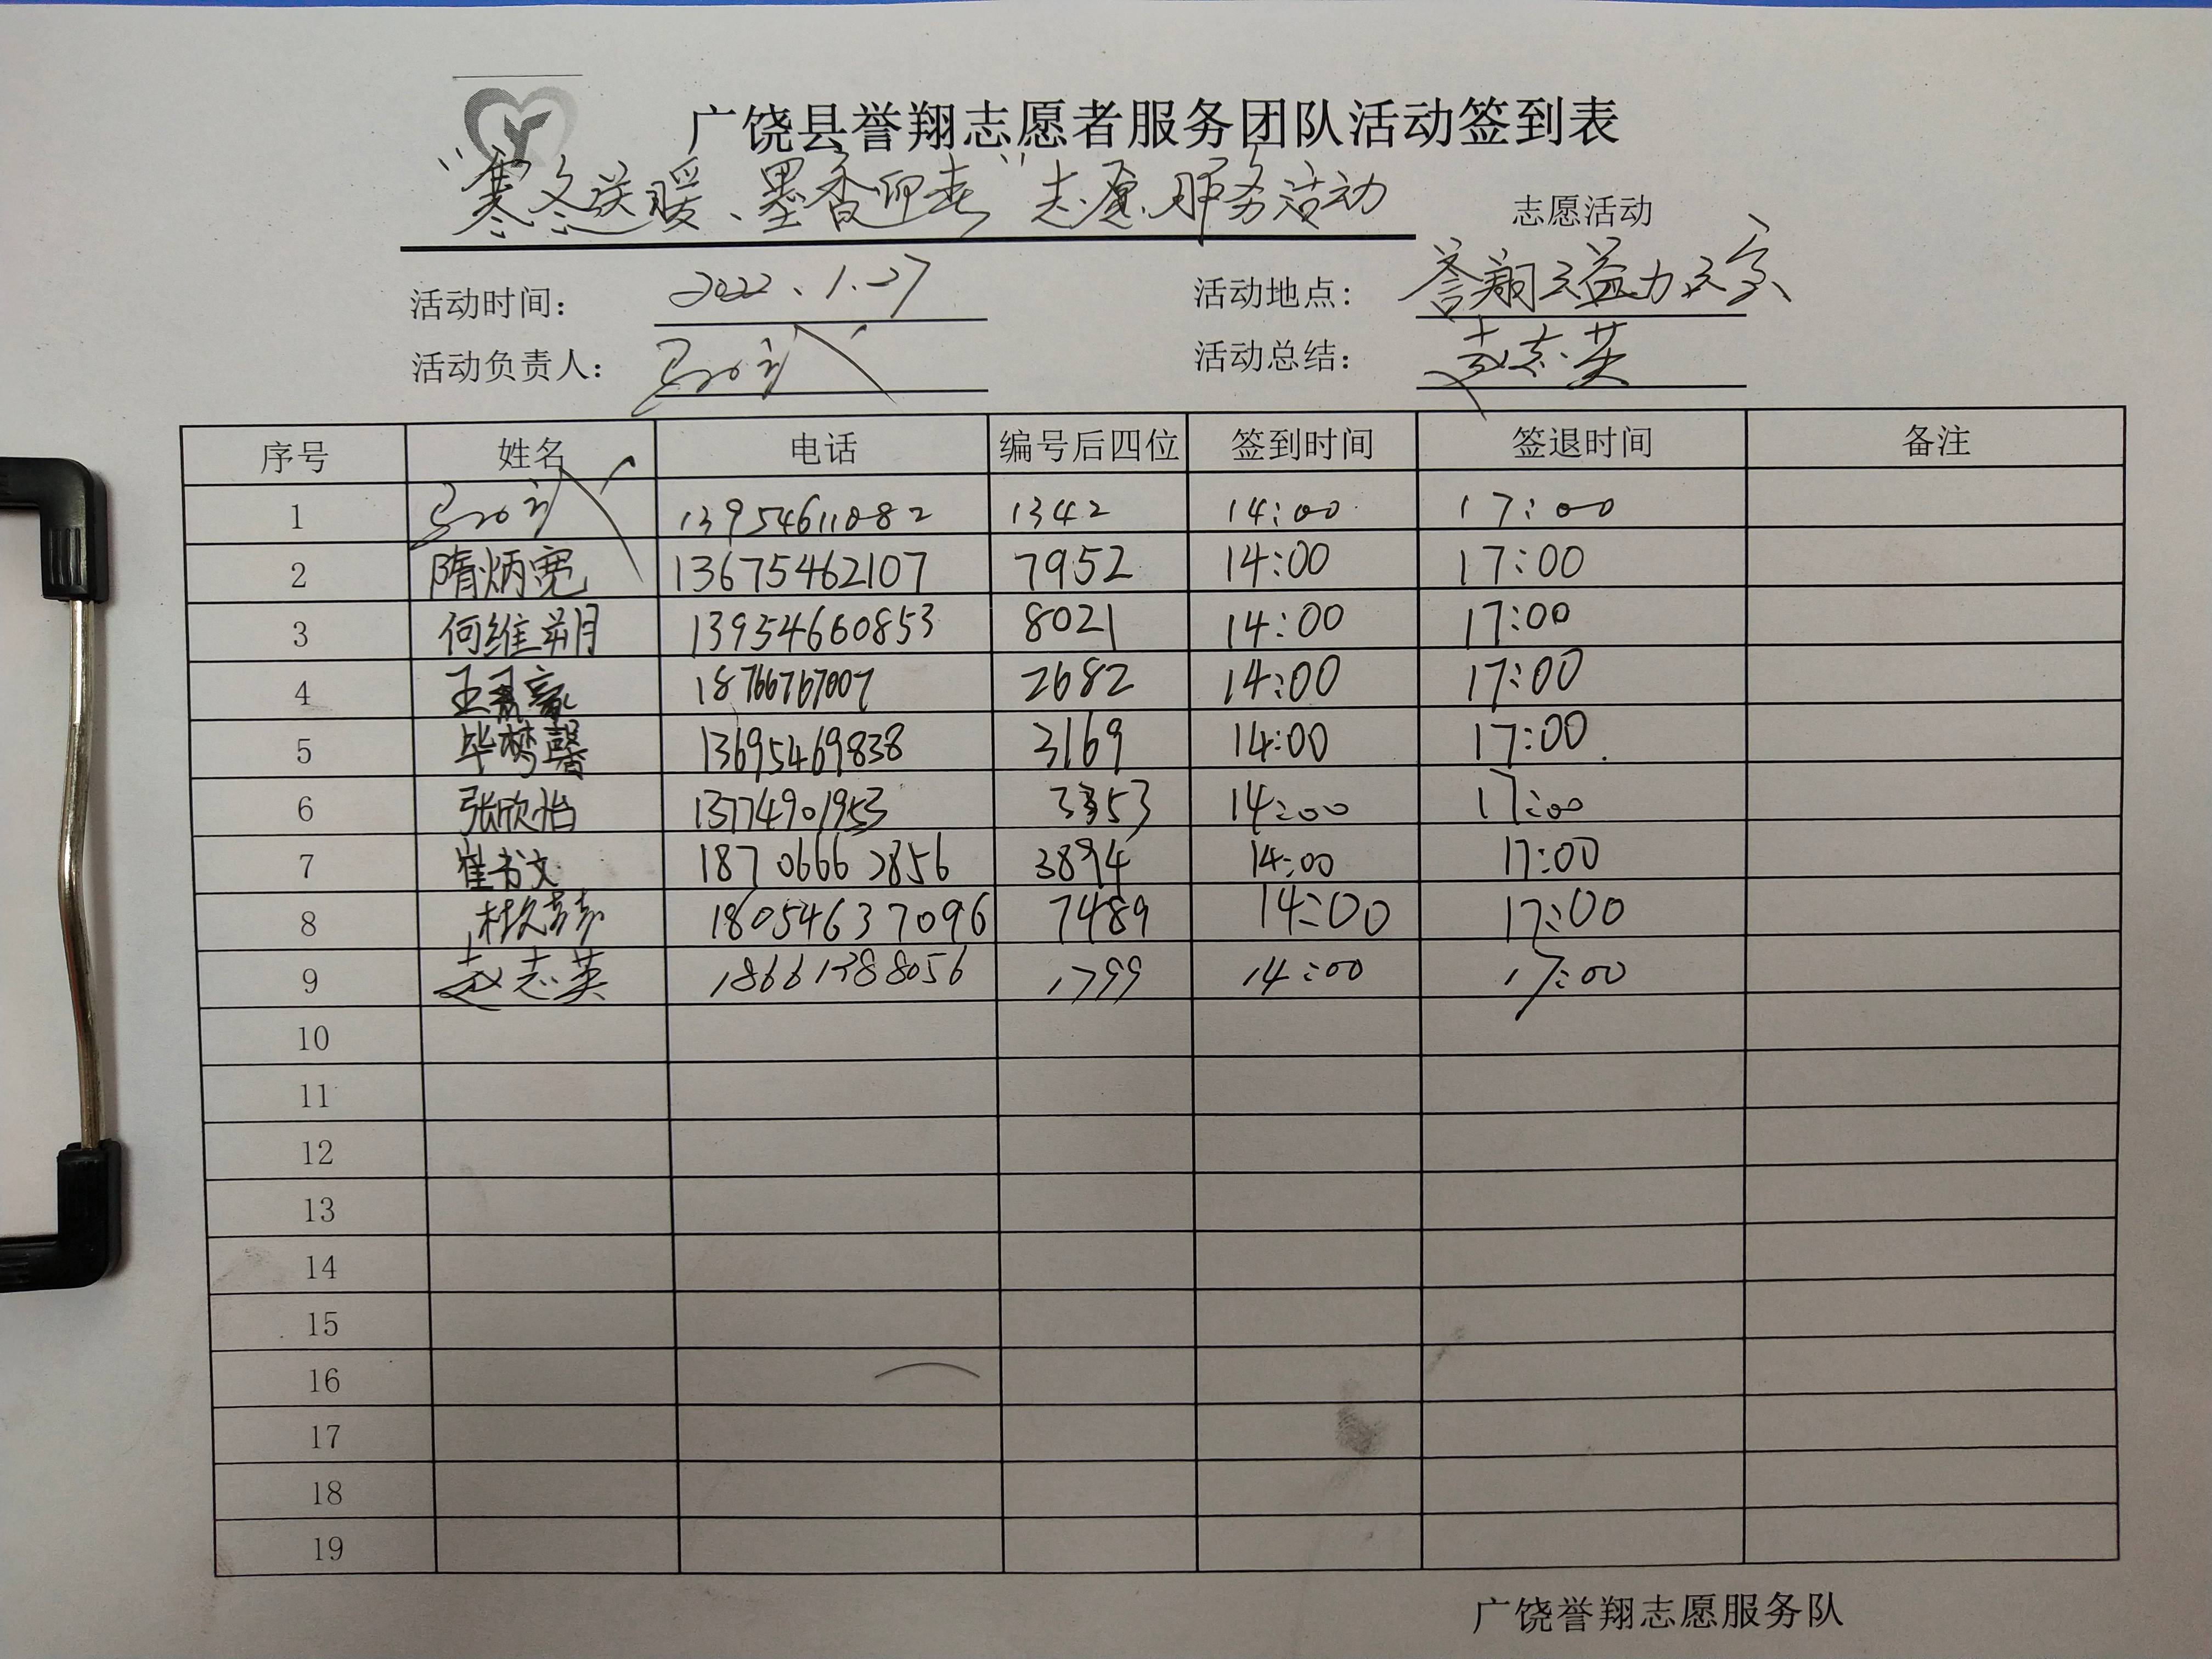 广饶县誉翔志愿者服务团队活动签到表
“寒冬送暖、墨香迎春”志愿服务活动 志愿活动
活动时间： 2022.1.27 活动地点： 誉翔益
活动负责人： 活动总结： 赵志英
序号 姓名 电话 编号后四位 签到时间 签退时间 备注
1 13954611082 1342 14:00 17:00
2 隋炳宽 13675462107 7952 14:00 17:00
3 何维朔 13954660853 8021 14:00 17:00
4 王豪 18766767007 2682 14:00 17:00
5 毕梦馨 13695469838 3169 14:00 17:00
6 张欣怡 13774901953 3353 14:00 17:00
7 崔书文 18706662856 3894 14:00 17:00
8 18054637096 7489 14:00 17:00
9 赵志英 18661388056 1799 14:00 17:00
10
11
12
13
14
15
16
17
18
19
广饶誉翔志愿服务队